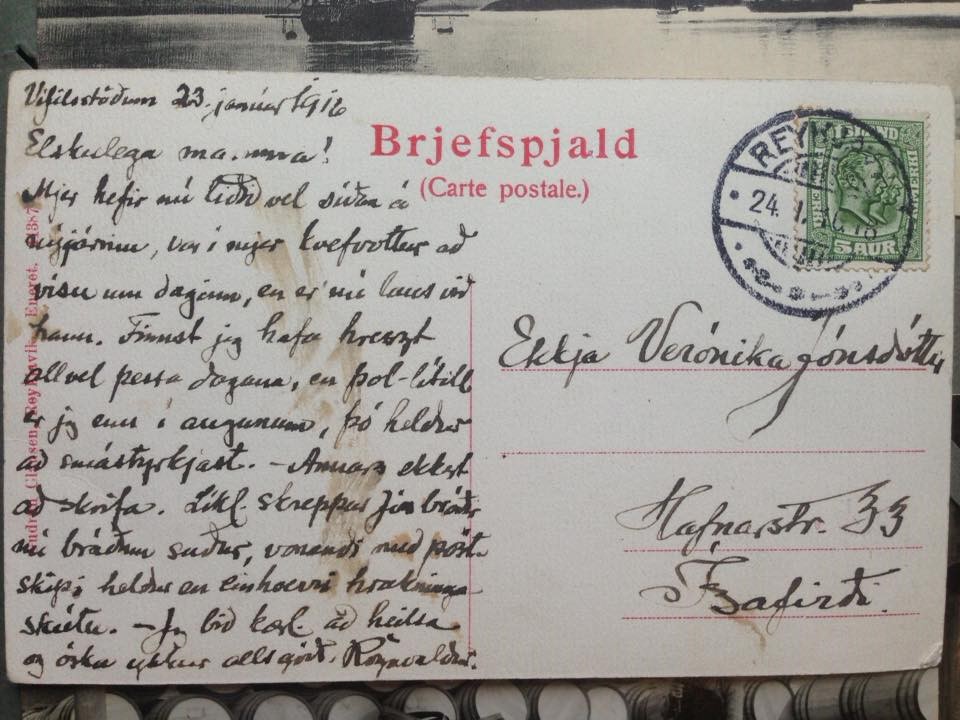 Vífilsstöðum 23. janúar 1916
Elskulega mamma!
Mjer hefir nú liðið vel síðan á
nýjárinu, var í mjer kvefvottur að
vísu um daginn, en er nú laus við
hann. Finnst jeg hafa hreszt
allvel þessa dagana, en þol-lítill
er jeg enn í augunum, þó heldur
að smástyrkjast. - Annars ekkert
að skrifa. Líkl. skreppur Jón bróðir
nú bráðum suður, vonandi með póst-
skipi heldur en einhverri hraknings
skútu. - Jeg bið kærl. að heilsa
og óska ykkur alls góðs. Rögnvaldur.
Brjefspjald
(Carte postale.)
REYKJA
24. 1.
5 AUR
Ekkja Verónika Jónsdóttir
Hafnarstr. 33
Ísafirði.
Reykjavik. Eneret.